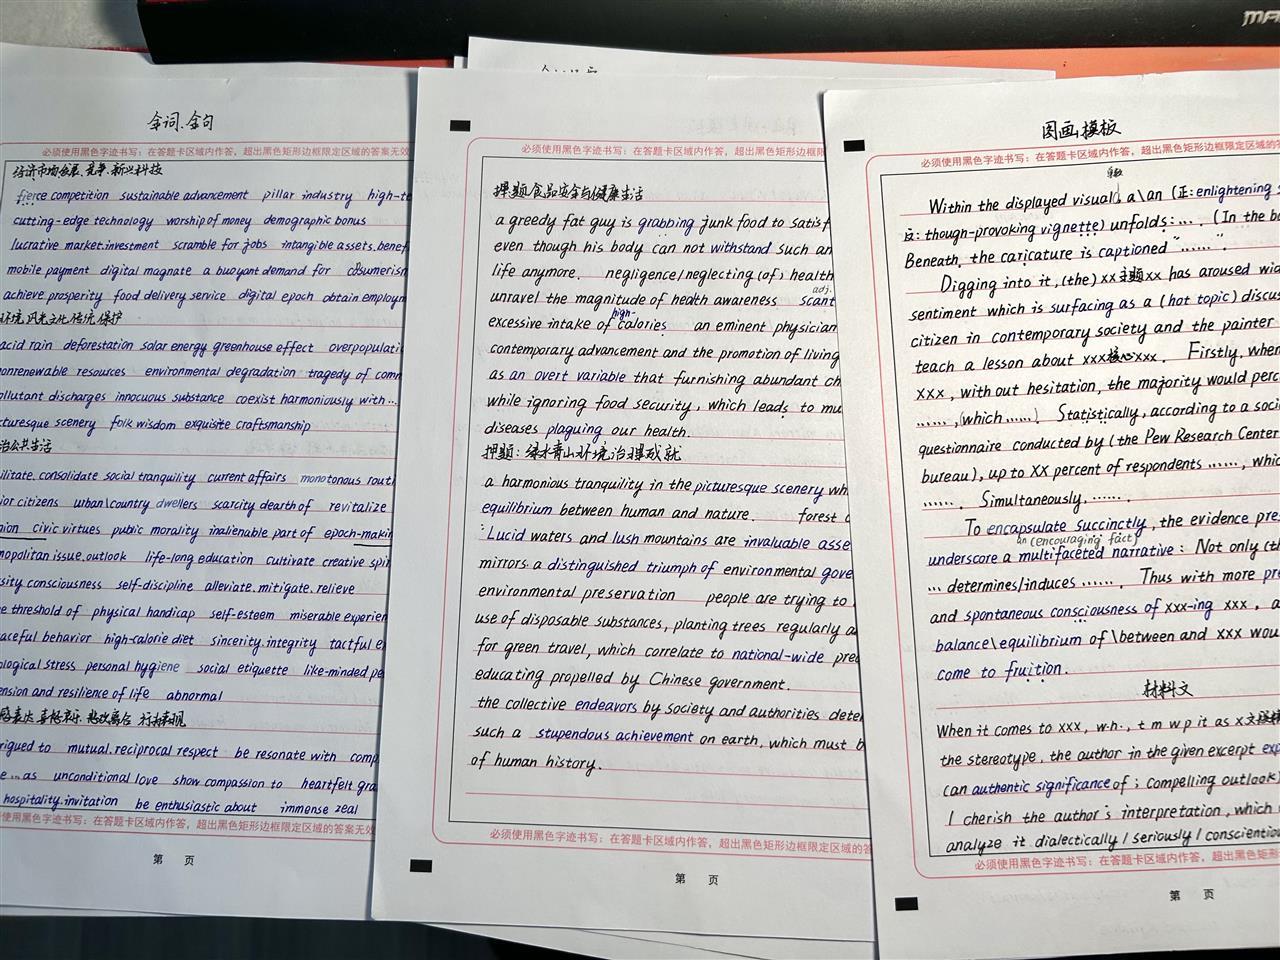 金词.金句
必须使用黑色字迹书写：在答题卡区域内作答，超出黑色矩形边框限定区域的答案无效
经济市场发展.竞争.新兴科技
fierce competition sustainable advancement pillar industry high-te
cutting-edge technology worship of money demographic bonus
lucrative market.investment scramble for jobs intangible assets.benef
mobile payment digital magnate a buoyant demand for cosumerism
achieve prosperity food delivery service digital epoch obtain employm
环境.风光文化.传统.保护
acid rain deforestation solar energy greenhouse effect overpopulati
nonrenewable resources environmental degradation tragedy of comm
ollutant discharges innocuous substance coexist harmoniously with...
cturesque scenery folk wisdom exquisite craftsmanship
治公共生活
ilitate.consolidate social tranquility current affairs monotonous routi
ior citizens urban\country dwellers scarcity dearth of revitalize
nion civic virtues public morality inalienable part of epoch-makin
mopolitan issue.outlook life-long education cultivate creative spiri
sity consciousness self-discipline alleviate.mitigate.relieve
e threshold of physical handicap self-esteem miserable experien
aceful behavior high-calorie diet sincerity.integrity tactful e
ological stress personal hygiene social etiquette like-minded pe
ension and resilience of life abnormal
rigued to mutual.reciprocal respect be resonate with comp
e...as unconditional love show compassion to heartfelt gra
hospitality.invitation be enthusiastic about immense zeal
使用黑色字迹书写：在答题卡区域内作答，超出黑色矩形边框限定区域的答案无效
第 页
必须使用黑色字迹书写：在答题卡区域内作答，超出黑色矩形边框限定区域的答案无效
押题食品安全与健康生活
a greedy fat guy is grabbing junk food to satisf
even though his body can not withstand such an
life anymore. negligence/neglecting (of) health
adj.
unravel the magnitude of health awareness scant
high-
excessive intake of calories an eminent physician
contemporary advancement and the promotion of living
as an overt variable that furnishing abundant ch
while ignoring food security, which leads to mu
diseases plaguing our health.
押题：绿水青山环境治理成就
a harmonious tranquility in the picturesque scenery wh
equilibrium between human and nature. forest c
"Lucid waters and lush mountains are invaluable asse
mirrors a distinguished triumph of environmental gove
environmental preservation people are trying to
use of disposable substances, planting trees regularly a
for green travel, which correlate to national-wide prec
educating propelled by Chinese government.
the collective endeavors by society and authorities dete
such a stupendous achievement on earth, which must b
of human history.
必须使用黑色字迹书写：在答题卡区域内作答，超出黑色矩形边框限定区域的答
第 页
图画模板
必须使用黑色字迹书写：在答题卡区域内作答，超出黑色矩形边框限定区
Within the displayed visual, a\an (正: enlightening s
反: though-provoking vignette) unfolds:... (In the bo
Beneath, the caricature is captioned "......".
Digging into it, (the) xx主题xx has aroused wid
sentiment which is surfacing as a (hot topic) discus
citizen in contemporary society and the painter
teach a lesson about xxx核心xxx. Firstly, when
xxx, without hesitation, the majority would perc
......, (which ......) Statistically, according to a soci
questionnaire conducted by (the Pew Research Center
bureau), up to XX percent of respondents ......, whic
....... Simultaneously, .......
To encapsulate succinctly, the evidence pres
an (encouraging fact)
underscore a multifaceted narrative: Not only (th
... determines/induces ....... Thus with more pre
and spontaneous consciousness of xxx-ing xxx, a
balance\equilibrium of \between and xxx wou
come to fruition.
材料文
When it comes to xxx, w.h., t m w p it as x
the stereotype, the author in the given excerpt exp
can authentic significance of; compelling outlook)
I cherish the author's interpretation, which n
analyze it dialectically / seriously / conscientiou
必须使用黑色字迹书写：在答题卡区域内作答，超出黑色矩形边框限
第 页